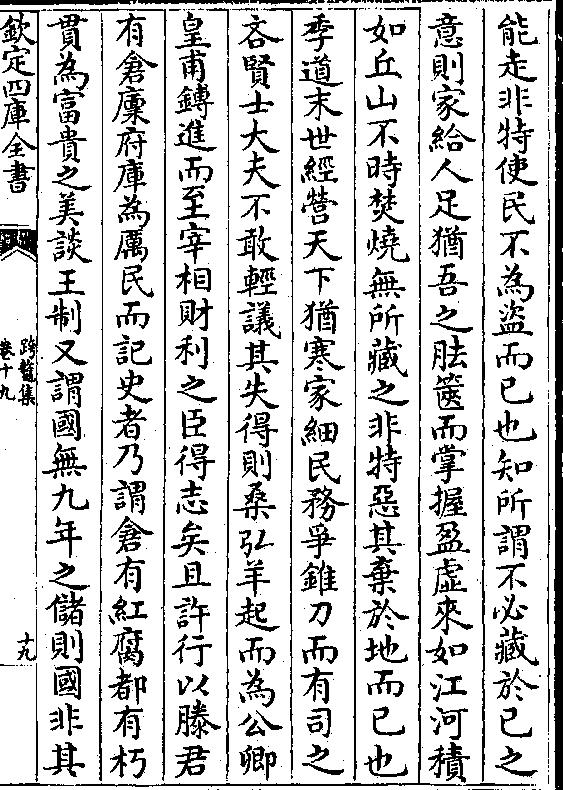 能走非特使民不為盜而已也知所謂不必藏於已之
意則家給人足猶吾之胠篋而掌握盈虛來如江河積
如丘山不時焚燒無所藏之非特惡其棄於地而已也
季道末世經營天下猶寒家細民務爭錐刀而有司之
吝賢士大夫不敢輕議其失得則桑弘羊起而為公卿
皇甫鏄進而至宰相財利之臣得志矣且許行以滕君
有倉廩府庫為厲民而記史者乃謂倉有紅腐都有朽
貫為富貴之美談王制又謂國無九年之儲則國非其
欽定四庫全書
跨鼇集
卷十九
十九